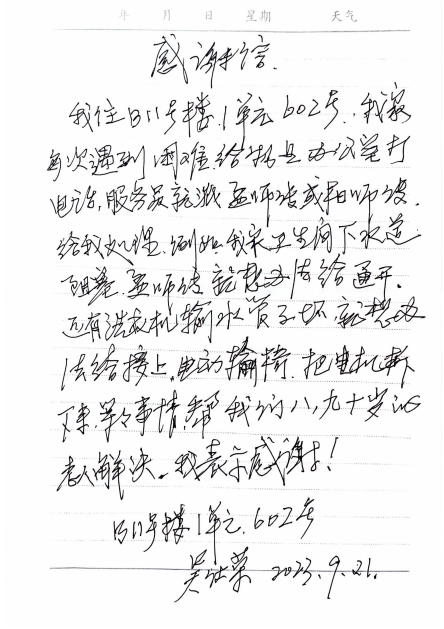 年 月 日 星期 天气
感谢信
我住B11号楼1单元602号,我家
每次遇到困难,给物业办公室打
电话,服务员就派孟师傅或和师傅
给我处理,例如:我家卫生间下水道
阻塞,孟师傅就想办法给通开。
还有洗衣机输水管子坏,就想办
法给接上,电动轮椅,把电机拆
下来,等等事情,帮我们八、九十岁的
老人解决。我表示感谢!
B11号楼1单元602号
2023.9.21.